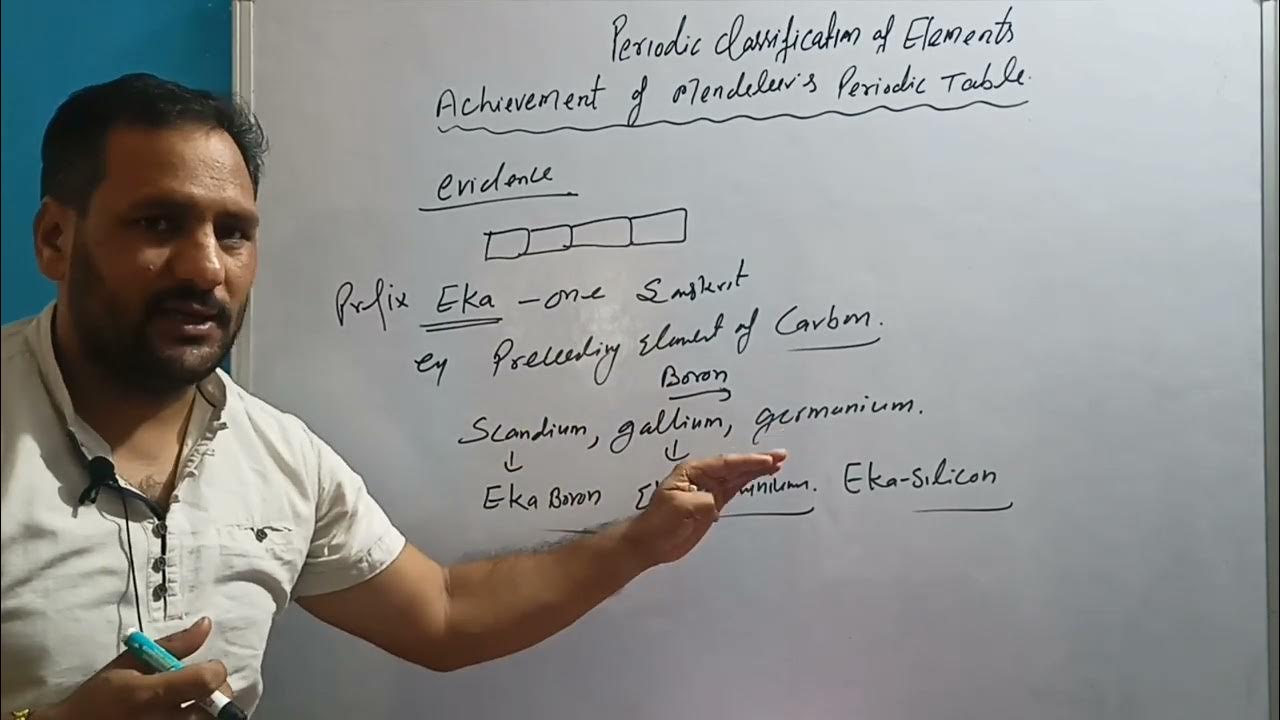 Periodic Classification of Elements
Achievement of Mendeleev's Periodic Table.
evidence
Prefix Eka - one Sanskrit
eg Preceeding Element of Carbon.
Boron
Scandium, gallium, germanium.
Eka Boron Eka-Silicon